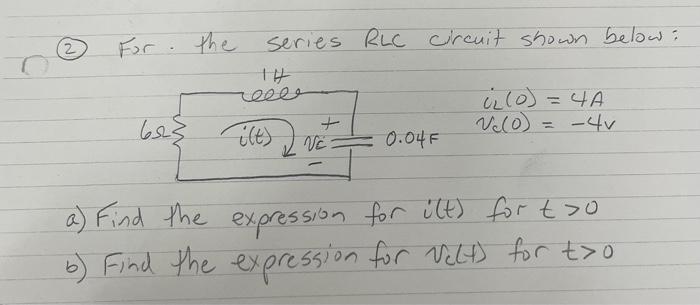 ② For. the series RLC circuit shown below:
1H
6Ω i(t) + Vc - 0.04F
iL(0) = 4A
Vc(0) = -4v
a) Find the expression for i(t) for t>0
b) Find the expression for Vc(t) for t>0